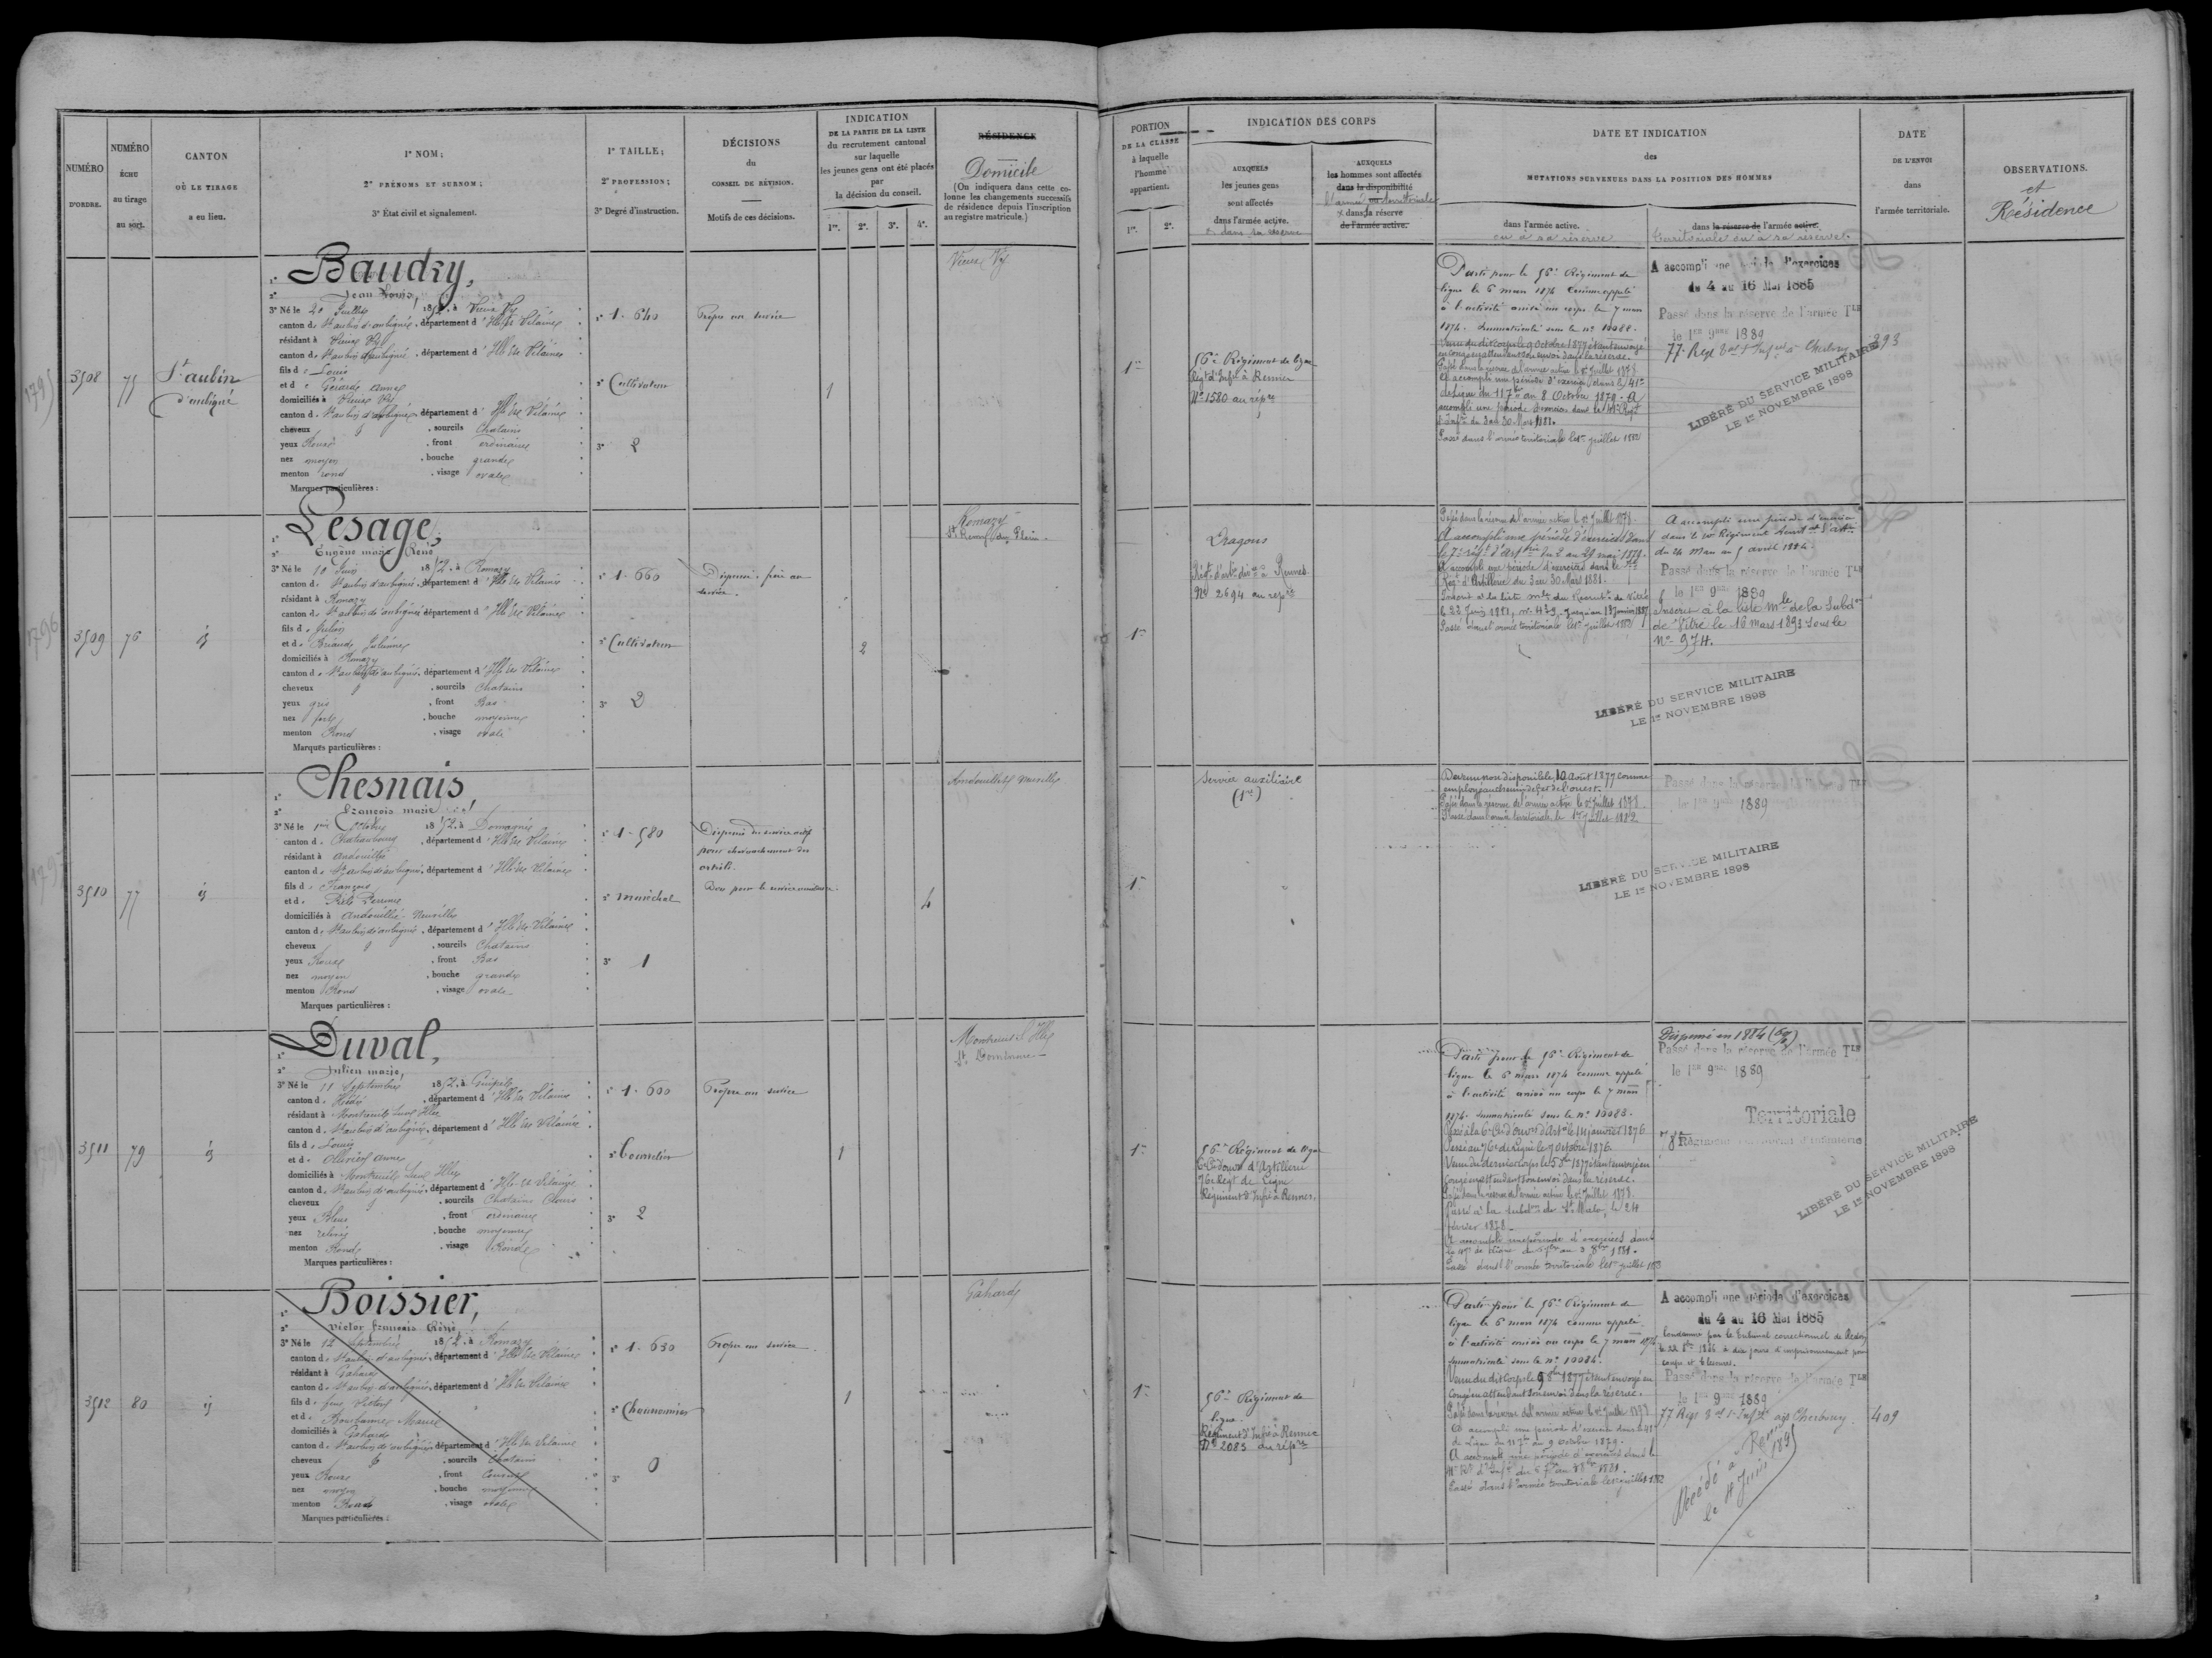 NUMÉRO
D'ORDRE.
NUMÉRO
ÉCHU
au tirage
au sort.
CANTON
OÙ LE TIRAGE
a eu lien.
1° NOM;
2° PRÉNOMS ET SURNOM;
3° État civil et signalement.
1° TAILLE;
2° PROFESSION;
3° Degré d'instruction.
DÉCISIONS
du
CONSEIL DE RÉVISION.
Motifs de ces décisions.
INDICATION
DE LA PARTIE DE LA LISTE
du recrutement cantonal
sur laquelle
les jeunes gens ont été placés
par
la décision du conseil.
1re. 2e. 3e. 4e.
RÉSIDENCE
Domicile
(On indiquera dans cette co-
lonne les changements successifs
de résidence depuis l'inscription
au registre matricule.)
PORTION
DE LA CLASSE
à laquelle
l'homme
appartient.
1re. 2e.
INDICATION DES CORPS
AUXQUELS
les jeunes gens
sont affectés
dans l'armée active.
& dans sa réserve
AUXQUELS
les hommes sont affectés
dans la disponibilité
l'armée territoriale
dans la réserve
de l'armée active.
DATE ET INDICATION
des
MUTATIONS SURVENUES DANS LA POSITION DES HOMMES
dans l'armée active.
ou à sa réserve
dans la réserve de l'armée active.
territoriale ou à sa réserve.
DATE
DE L'ENVOI
dans
l'armée territoriale.
OBSERVATIONS.
et
Résidence
1795
3508
75
St aubin
d'aubigné
1° Baudry,
2° Jean Louis,
3° Né le 20 Juillet 1852. à Vieux Vy
canton de St aubin d'aubigné, département d'Ille & Vilaine
résidant à Vieux Vy
canton de St aubin d'aubigné, département d'Ille & Vilaine
fils de Louis
et de Gérard anne
domiciliés à Vieux Vy
canton de St aubin d'aubigné, département d'Ille & Vilaine
cheveux & , sourcils Chatains
yeux Roux , front ordinaire
nez moyen , bouche grande
menton rond , visage ovale
Marques particulières :
1° 1.640
2° Cultivateur
3° 2
Propre au service
1
Vieux Vy
1re
56e Régiment de ligne
Régt d'Infie à Rennes
N° 1580 au répre
Parti pour le 56e Régiment de
ligne le 6 mars 1874 comme appelé
à l'activité arrivé au corps le 7 mars
1874. Immatriculé sous le n° 10088.
Venu du dit corps le 9 octobre 1877 étant envoyé
en congé en attendant son envoi dans la réserve.
Passé dans la réserve de l'armée active le 1er Juillet 1878.
A accompli une période d'exercices dans le 41e
de Ligne du 11 7bre au 8 Octobre 1879. A
accompli une période d'exercices dans le 41e Régt
d'Infie du 3 au 30 Mars 1881.
Passé dans l'armée territoriale le 1er juillet 1882
A accompli une période d'exercices
du 4 au 16 Mai 1885
Passé dans la réserve de l'armée Tle
le 1er 9bre 1889
77 Régt Tal d'Infie à Cherbourg
293
LIBÉRÉ DU SERVICE MILITAIRE
LE 1er NOVEMBRE 1898
1796
3509
76
id
1° Lesage,
2° Eugène marie René
3° Né le 10 Juin 1852. à Romazy
canton de St aubin d'aubigné, département d'Ille & Vilaine
résidant à Romazy
canton de St aubin d'aubigné, département d'Ille & Vilaine
fils de Julien
et de Briand Julienne
domiciliés à Romazy
canton de St aubin d'aubigné, département d'Ille & Vilaine
cheveux & , sourcils Chatains
yeux gris , front Bas
nez fort , bouche moyenne
menton Rond , visage ovale
Marques particulières :
1° 1.660
2° Cultivateur
3° 2
Dispensé, frère au
service.
2
Romazy
St Remy du Plain
1re
Dragons
Régt d'artie divre à Rennes
N° 2694 au répre
Passé dans la réserve de l'armée active le 1er Juillet 1878.
A accompli une période d'exercices dans
le 7e régt d'artrie du 2 au 29 mai 1879.
A accompli une période d'exercices dans le 7e
Régt d'Artillerie du 3 au 30 Mars 1881.
Inscrit à la liste mle du Recrutt de Vitré
le 23 Juin 1881, n° 429.
Passé dans l'armée territoriale le 1er juillet 1882
A accompli une période d'exercices
dans le 10e Régiment territal d'artie
du 24 Mars au 5 avril 1884.
Passé dans la réserve de l'armée Tle
le 1er 9bre 1889
Inscrit à la liste mle de la Subdon
de Vitré le 16 mars 1893 sous le
N° 974.
LIBÉRÉ DU SERVICE MILITAIRE
LE 1er NOVEMBRE 1898
3510
77
id
1° Chesnais
2° François marie
3° Né le 1er Octobre 1852. à Domagné
canton de Chateaubourg, département d'Ille & Vilaine
résidant à andouillé
canton de St aubin d'aubigné, département d'Ille & Vilaine
fils de François
et de Perrine
domiciliés à andouillé-Neuville
canton de St aubin d'aubigné, département d'Ille & Vilaine
cheveux & , sourcils Chatains
yeux Roux , front Bas
nez moyen , bouche grande
menton Rond , visage ovale
Marques particulières :
1° 1.580
2° maréchal
3° 1
Dispensé du service actif
pour chevauchement des
orteils.
Bon pour le service auxiliaire.
4
Andouillé Neuville
1re
Service auxiliaire
(1re)
Devenu non disponible, 10 août 1877 comme
employé au chemin de fer de l'ouest.
Passé dans la réserve de l'armée active le 1er Juillet 1878.
Passé dans l'armée territoriale le 1er juillet 1882.
Passé dans la réserve de l'armée Tle
le 1er 9bre 1889
LIBÉRÉ DU SERVICE MILITAIRE
LE 1er NOVEMBRE 1898
3511
79
id
1° Duval,
2° Julien marie,
3° Né le 11 Septembre 1852. à Guipel
canton de Hédé, département d'Ille & Vilaine
résidant à Montreuil sur Ille
canton de St aubin d'aubigné, département d'Ille & Vilaine
fils de Louis
et de Ollivier anne
domiciliés à Montreuil sur Ille
canton de St aubin d'aubigné, département d'Ille & Vilaine
cheveux & , sourcils Chatains Clairs
yeux Bleus , front ordinaire
nez relevé , bouche moyenne
menton Rond , visage Rond
Marques particulières :
1° 1.600
2° Bourrelier
3° 2
Propre au service
1
Montreuil S. Ille
St Domineuc
1re
56e Régiment de ligne
6e Cie d'ouvrs d'Artillerie
76e Régt de Ligne
Régiment d'Infie à Rennes.
Parti pour le 56e Régiment de
ligne le 6 mars 1874 comme appelé
à l'activité arrivé au corps le 7 mars
1874. Immatriculé sous le n° 10083.
Passé à la 6e Cie d'ouvrs d'Artie le 14 janvier 1876
Passé au 76e de Ligne le 9 octobre 1876.
Venu du dernier corps le 5 8bre 1877 étant envoyé en
congé en attendant son envoi dans la réserve.
Passé dans la réserve de l'armée active le 1er Juillet 1878.
Passé à la subdon de St Malo, le 24
février 1878.
A accompli une période d'exercices dans
le 47e de Ligne du 5 7bre au 3 8bre 1881.
Passé dans l'armée territoriale le 1er juillet 1882
Dispensé en 1884
Passé dans la réserve de l'armée Tle
le 1er 9bre 1889
Territoriale
78e Régiment territorial d'infanterie
LIBÉRÉ DU SERVICE MILITAIRE
LE 1er NOVEMBRE 1898
3512
80
id
1° Boissier,
2° Victor François René
3° Né le 12 Septembre 1852. à Romazy
canton de St aubin d'aubigné, département d'Ille & Vilaine
résidant à Gahard
canton de St aubin d'aubigné, département d'Ille & Vilaine
fils de feu Victor
et de Marie
domiciliés à Gahard
canton de St aubin d'aubigné, département d'Ille & Vilaine
cheveux & , sourcils Chatains
yeux Roux , front Couvert
nez moyen , bouche moyenne
menton Rond , visage ovale
Marques particulières :
1° 1.630
2°
3° 0
Propre au service
1
Gahard
1re
56e Régiment de
ligne
Régiment d'Infie à Rennes
N° 2085 au répre
Parti pour le 56e Régiment de
ligne le 6 mars 1874 comme appelé
à l'activité arrivé au corps le 7 mars 1874
Immatriculé sous le n° 10084.
Venu du dit corps le 9 8bre 1877 étant envoyé en
congé en attendant son envoi dans la réserve.
Passé dans la réserve de l'armée active le 1er Juillet 1878
A accompli une période d'exercices dans le 41e
de Ligne du 11 7bre au 9 octobre 1879.
A accompli une période d'exercices dans le
41e Rt d'Infie du 5 7bre au 3 8bre 1881.
Passé dans l'armée territoriale le 1er juillet 1882
A accompli une période d'exercices
du 4 au 16 Mai 1885
Condamné par le tribunal correctionnel de Redon
le 22 8bre 1886 à dix jours d'emprisonnement pour
coups et blessures.
Passé dans la réserve de l'armée Tle
le 1er 9bre 1889
77 Régt Tal d'Infie à Cherbourg
409
Décédé à Rennes
le 4 Juin 1895
2